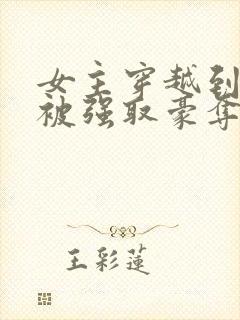 女主穿越到
被强取豪夺
王彩莲